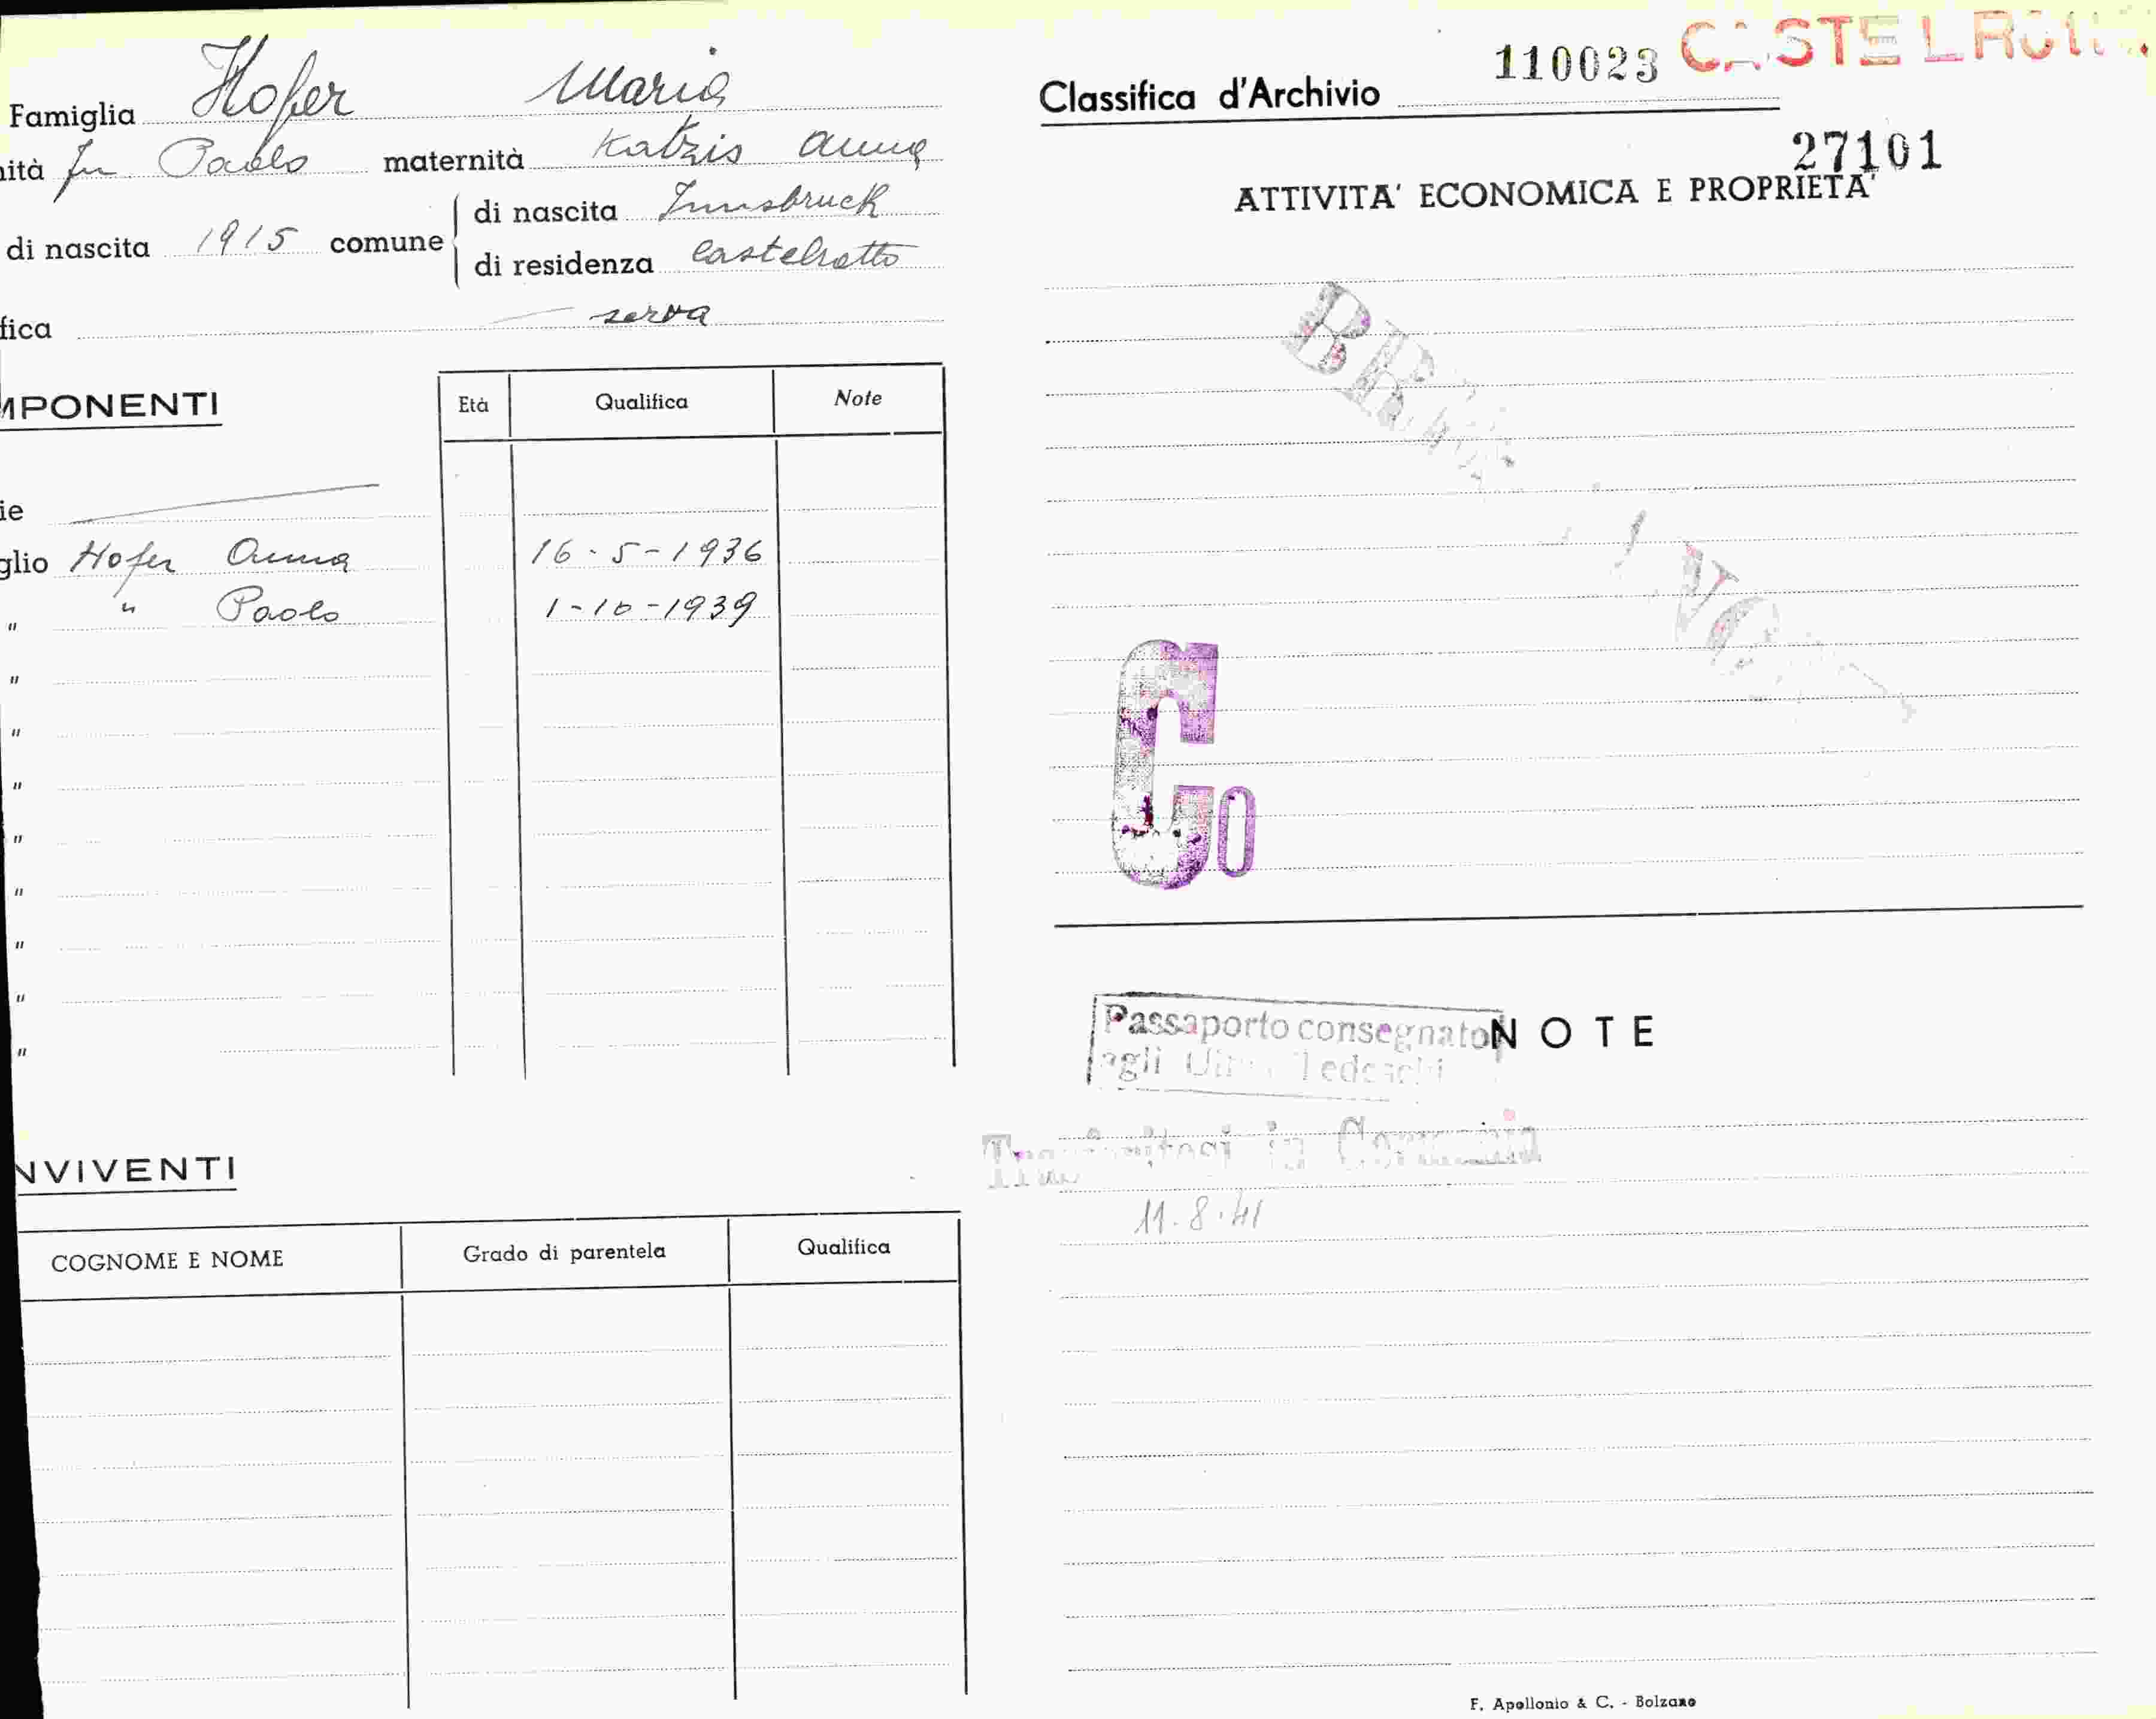 Famiglia Hofer Maria
ità fu Paolo maternità Katzis Anna
di nascita 1915 comune di nascita Innsbruck
di residenza Castelrotto
fica serva
MPONENTI
Età Qualifica Note
ie
glio Hofer Anna 16-5-1936
" " Paolo 1-10-1939
"
"
"
"
"
"
"
"
NVIVENTI
COGNOME E NOME Grado di parentela Qualifica
Classifica d'Archivio 110023
27101
ATTIVITA' ECONOMICA E PROPRIETA'
G0
Passaporto consegnato
agli Tedeschi
NOTE
in
11.8.41
F. Apollonio & C. - Bolzano